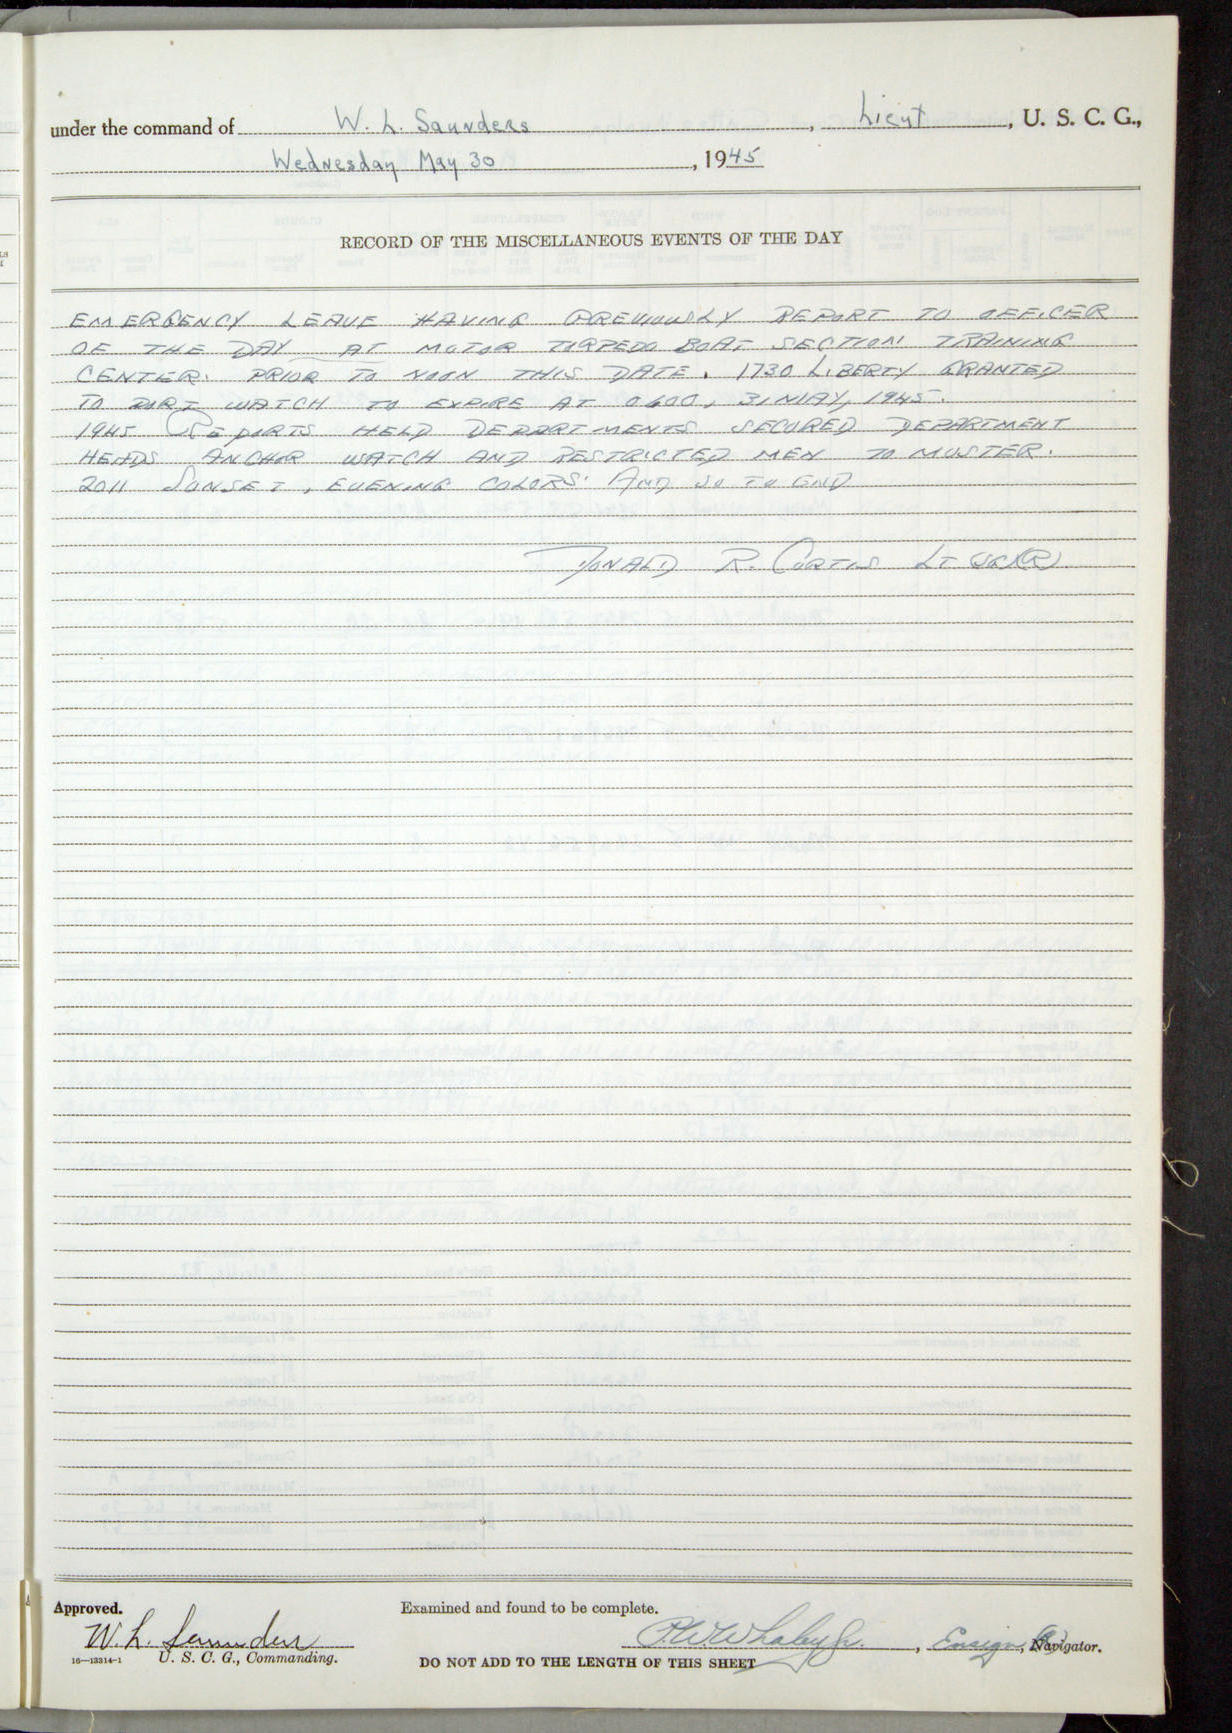 under the command of W. L. Saunders, Lieut, U. S. C. G.,
Wednesday May 30, 1945
RECORD OF THE MISCELLANEOUS EVENTS OF THE DAY
EMERGENCY LEAVE HAVING PREVIOUSLY REPORT TO OFFICER
OF THE DAY AT MOTOR TORPEDO BOAT SECTION TRAINING
CENTER. PRIOR TO NOON THIS DATE. 1730 LIBERTY GRANTED
TO PORT WATCH TO EXPIRE AT 0600, 31 MAY, 1945.
1945 REPORTS HELD DEPARTMENTS SECURED DEPARTMENT
HEADS ANCHOR WATCH AND RESTRICTED MEN TO MUSTER.
2011 SUNSET, EVENING COLORS. AND SO TO END
DONALD R. CURTIS LT
Approved.
Examined and found to be complete.
W. L. Saunders
P.W. Whaley Jr., Ensign, Navigator.
16—13314-1 U. S. C. G., Commanding.
DO NOT ADD TO THE LENGTH OF THIS SHEET